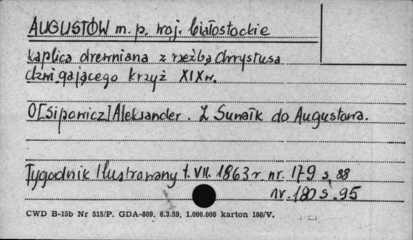 AUGUSTÓW m. p. woj. białostockie
kaplica drewniana z rzeźbą Chrystusa
dźwigającego krzyż XIX w.
O[Sipowicz] Aleksander. Z Suwałk do Augustowa.
Tygodnik Ilustrowany t. VII. 1863 r. nr. 179 s. 88
nr. 180 s. 95
CWD B-15b Nr 515/P. GDA-809. 6.3.59. 1.000.000 karton 180/V.